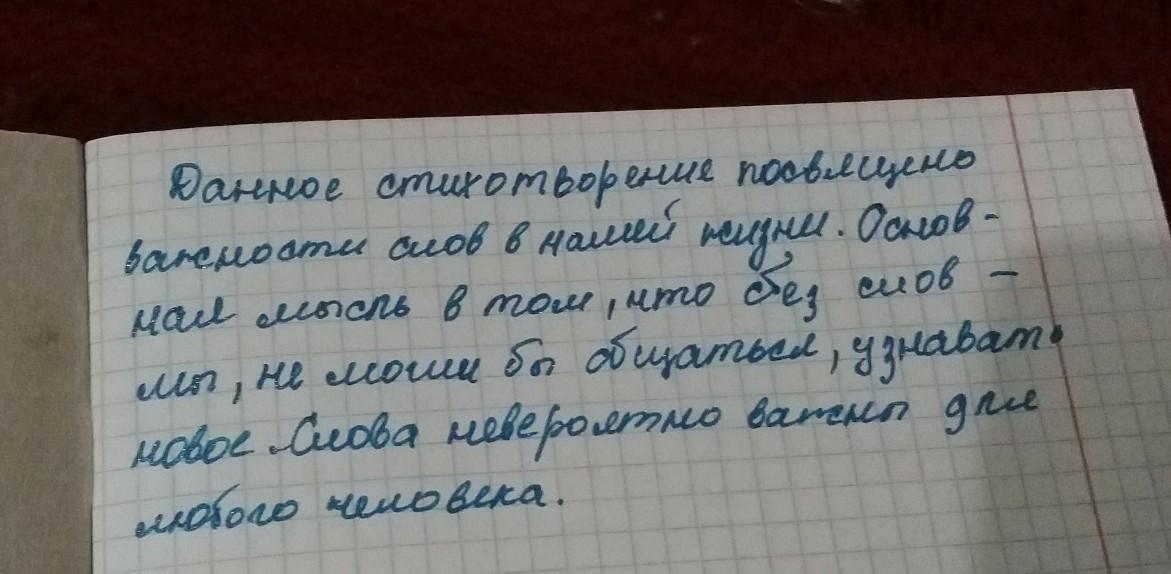 Данное стихотворение посвящено
важности слов в нашей жизни. Основ-
ная мысль в том, что без слов -
мы, не могли бы общаться, узнавать
новое. Слова невероятно важны для
любого человека.